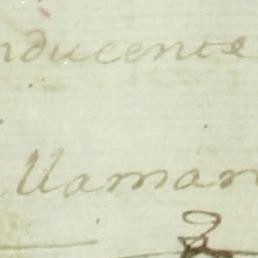 nducente
llaman